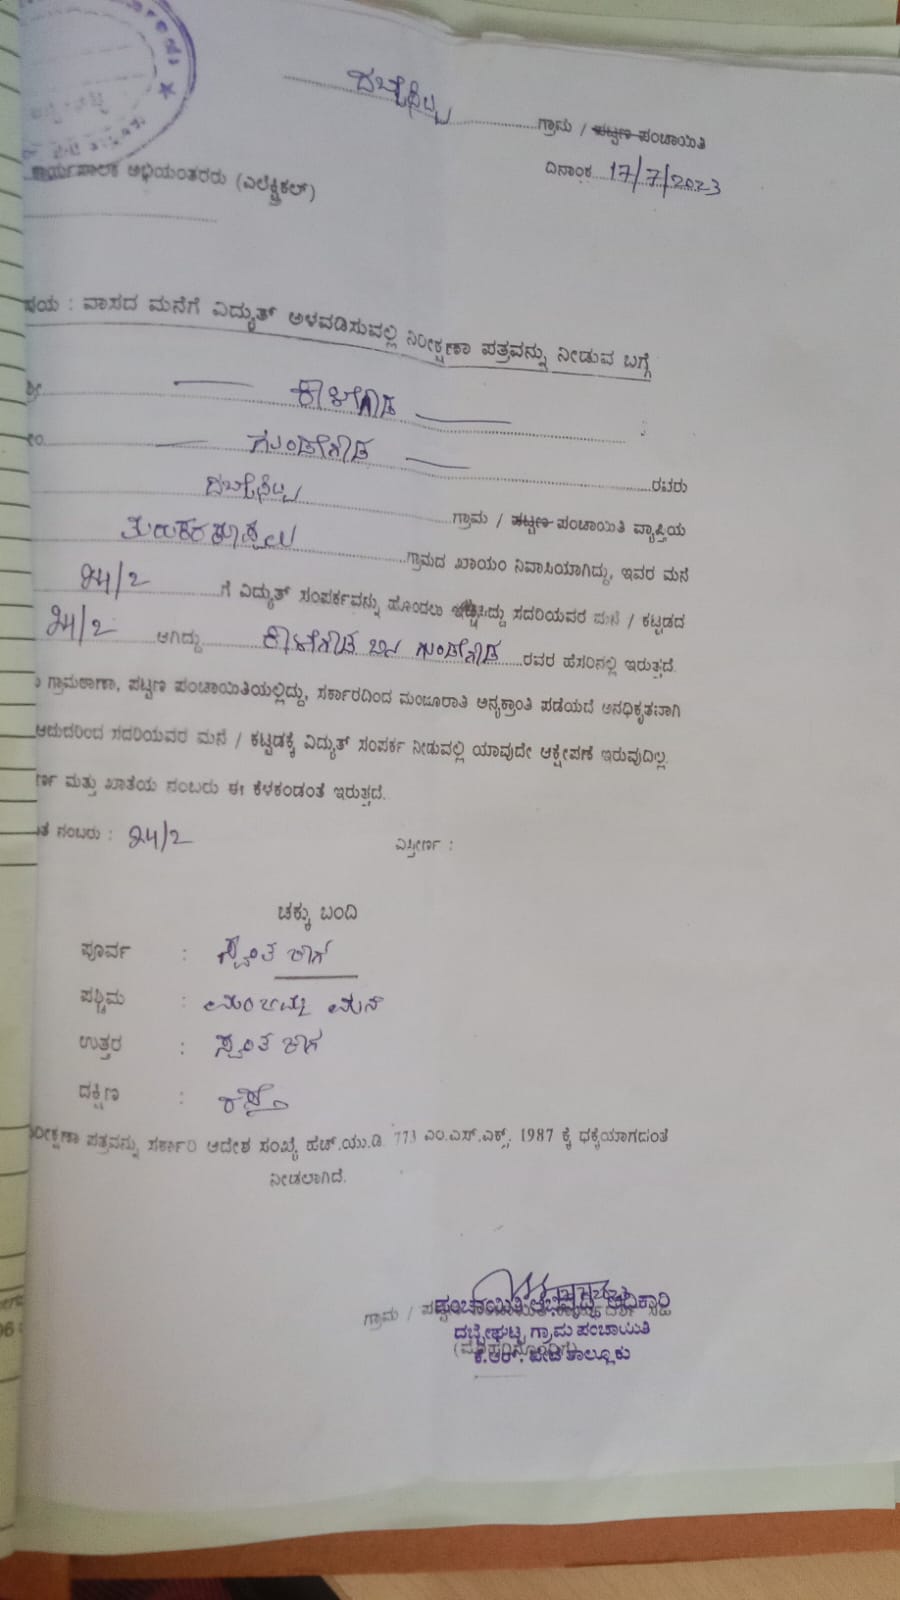 ದಬ್ಬೇಘಟ್ಟ ಗ್ರಾಮ / ಪಟ್ಟಣ ಪಂಚಾಯಿತಿ
ದಿನಾಂಕ 17/7/2023
ಕಾರ್ಯಪಾಲಕ ಅಭಿಯಂತರರು (ಎಲೆಕ್ಟ್ರಿಕಲ್)
ಷಯ : ವಾಸದ ಮನೆಗೆ ವಿದ್ಯುತ್ ಅಳವಡಿಸುವಲ್ಲಿ ನಿರೀಕ್ಷಣಾ ಪತ್ರವನ್ನು ನೀಡುವ ಬಗ್ಗೆ
ಶ್ರೀ ಕಾಳೇಗೌಡ
ಗುಂಡೇಗೌಡ ರವರು
ದಬ್ಬೇಘಟ್ಟ ಗ್ರಾಮ / ಪಟ್ಟಣ ಪಂಚಾಯಿತಿ ವ್ಯಾಪ್ತಿಯ
ಗ್ರಾಮದ ಖಾಯಂ ನಿವಾಸಿಯಾಗಿದ್ದು, ಇವರ ಮನೆ
24/2 ಗೆ ವಿದ್ಯುತ್ ಸಂಪರ್ಕವನ್ನು ಹೊಂದಲು ಇಚ್ಚಿಸಿದ್ದು ಸದರಿಯವರ ಮನೆ / ಕಟ್ಟಡದ
24/2 ಆಗಿದ್ದು ಕಾಳೇಗೌಡ ಬಿನ ಗುಂಡೇಗೌಡ ರವರ ಹೆಸರಿನಲ್ಲಿ ಇರುತ್ತದೆ.
ಗ್ರಾಮಠಾಣಾ, ಪಟ್ಟಣ ಪಂಚಾಯಿತಿಯಲ್ಲಿದ್ದು, ಸರ್ಕಾರದಿಂದ ಮಂಜೂರಾತಿ ಅನ್ಯಕ್ರಾಂತಿ ಪಡೆಯದೆ ಅನಧಿಕೃತವಾಗಿ
ಆದುದರಿಂದ ಸದರಿಯವರ ಮನೆ / ಕಟ್ಟಡಕ್ಕೆ ವಿದ್ಯುತ್ ಸಂಪರ್ಕ ನೀಡುವಲ್ಲಿ ಯಾವುದೇ ಆಕ್ಷೇಪಣೆ ಇರುವುದಿಲ್ಲ.
ರ್ಣ ಮತ್ತು ಖಾತೆಯ ನಂಬರು ಈ ಕೆಳಕಂಡಂತೆ ಇರುತ್ತದೆ.
ತೆ ನಂಬರು : 24/2 ವಿಸ್ತೀರ್ಣ :
ಚಕ್ಕು ಬಂದಿ
ಪೂರ್ವ : ಸ್ವಂತ ಜಾಗ
ಪಶ್ಚಿಮ : ಮಂಜಮ್ಮ ಮನೆ
ಉತ್ತರ : ಸ್ವಂತ ಜಾಗ
ದಕ್ಷಿಣ : ರಸ್ತೆ
ನಿರೀಕ್ಷಣಾ ಪತ್ರವನ್ನು ಸರ್ಕಾರಿ ಆದೇಶ ಸಂಖ್ಯೆ ಹೆಚ್.ಯು.ಡಿ. 773 ಎಂ.ಎನ್.ಎಕ್ಸ್. 1987 ಕ್ಕೆ ಧಕ್ಕೆಯಾಗದಂತೆ
ನೀಡಲಾಗಿದೆ.
ಗ್ರಾಮ / ಪಂಚಾಯಿತಿ ಅಭಿವೃದ್ಧಿ ಅಧಿಕಾರಿ
ದಬ್ಬೇಘಟ್ಟ ಗ್ರಾಮ ಪಂಚಾಯಿತಿ
ಕೆ.ಆರ್. ಪೇಟೆ ತಾಲ್ಲೂಕು